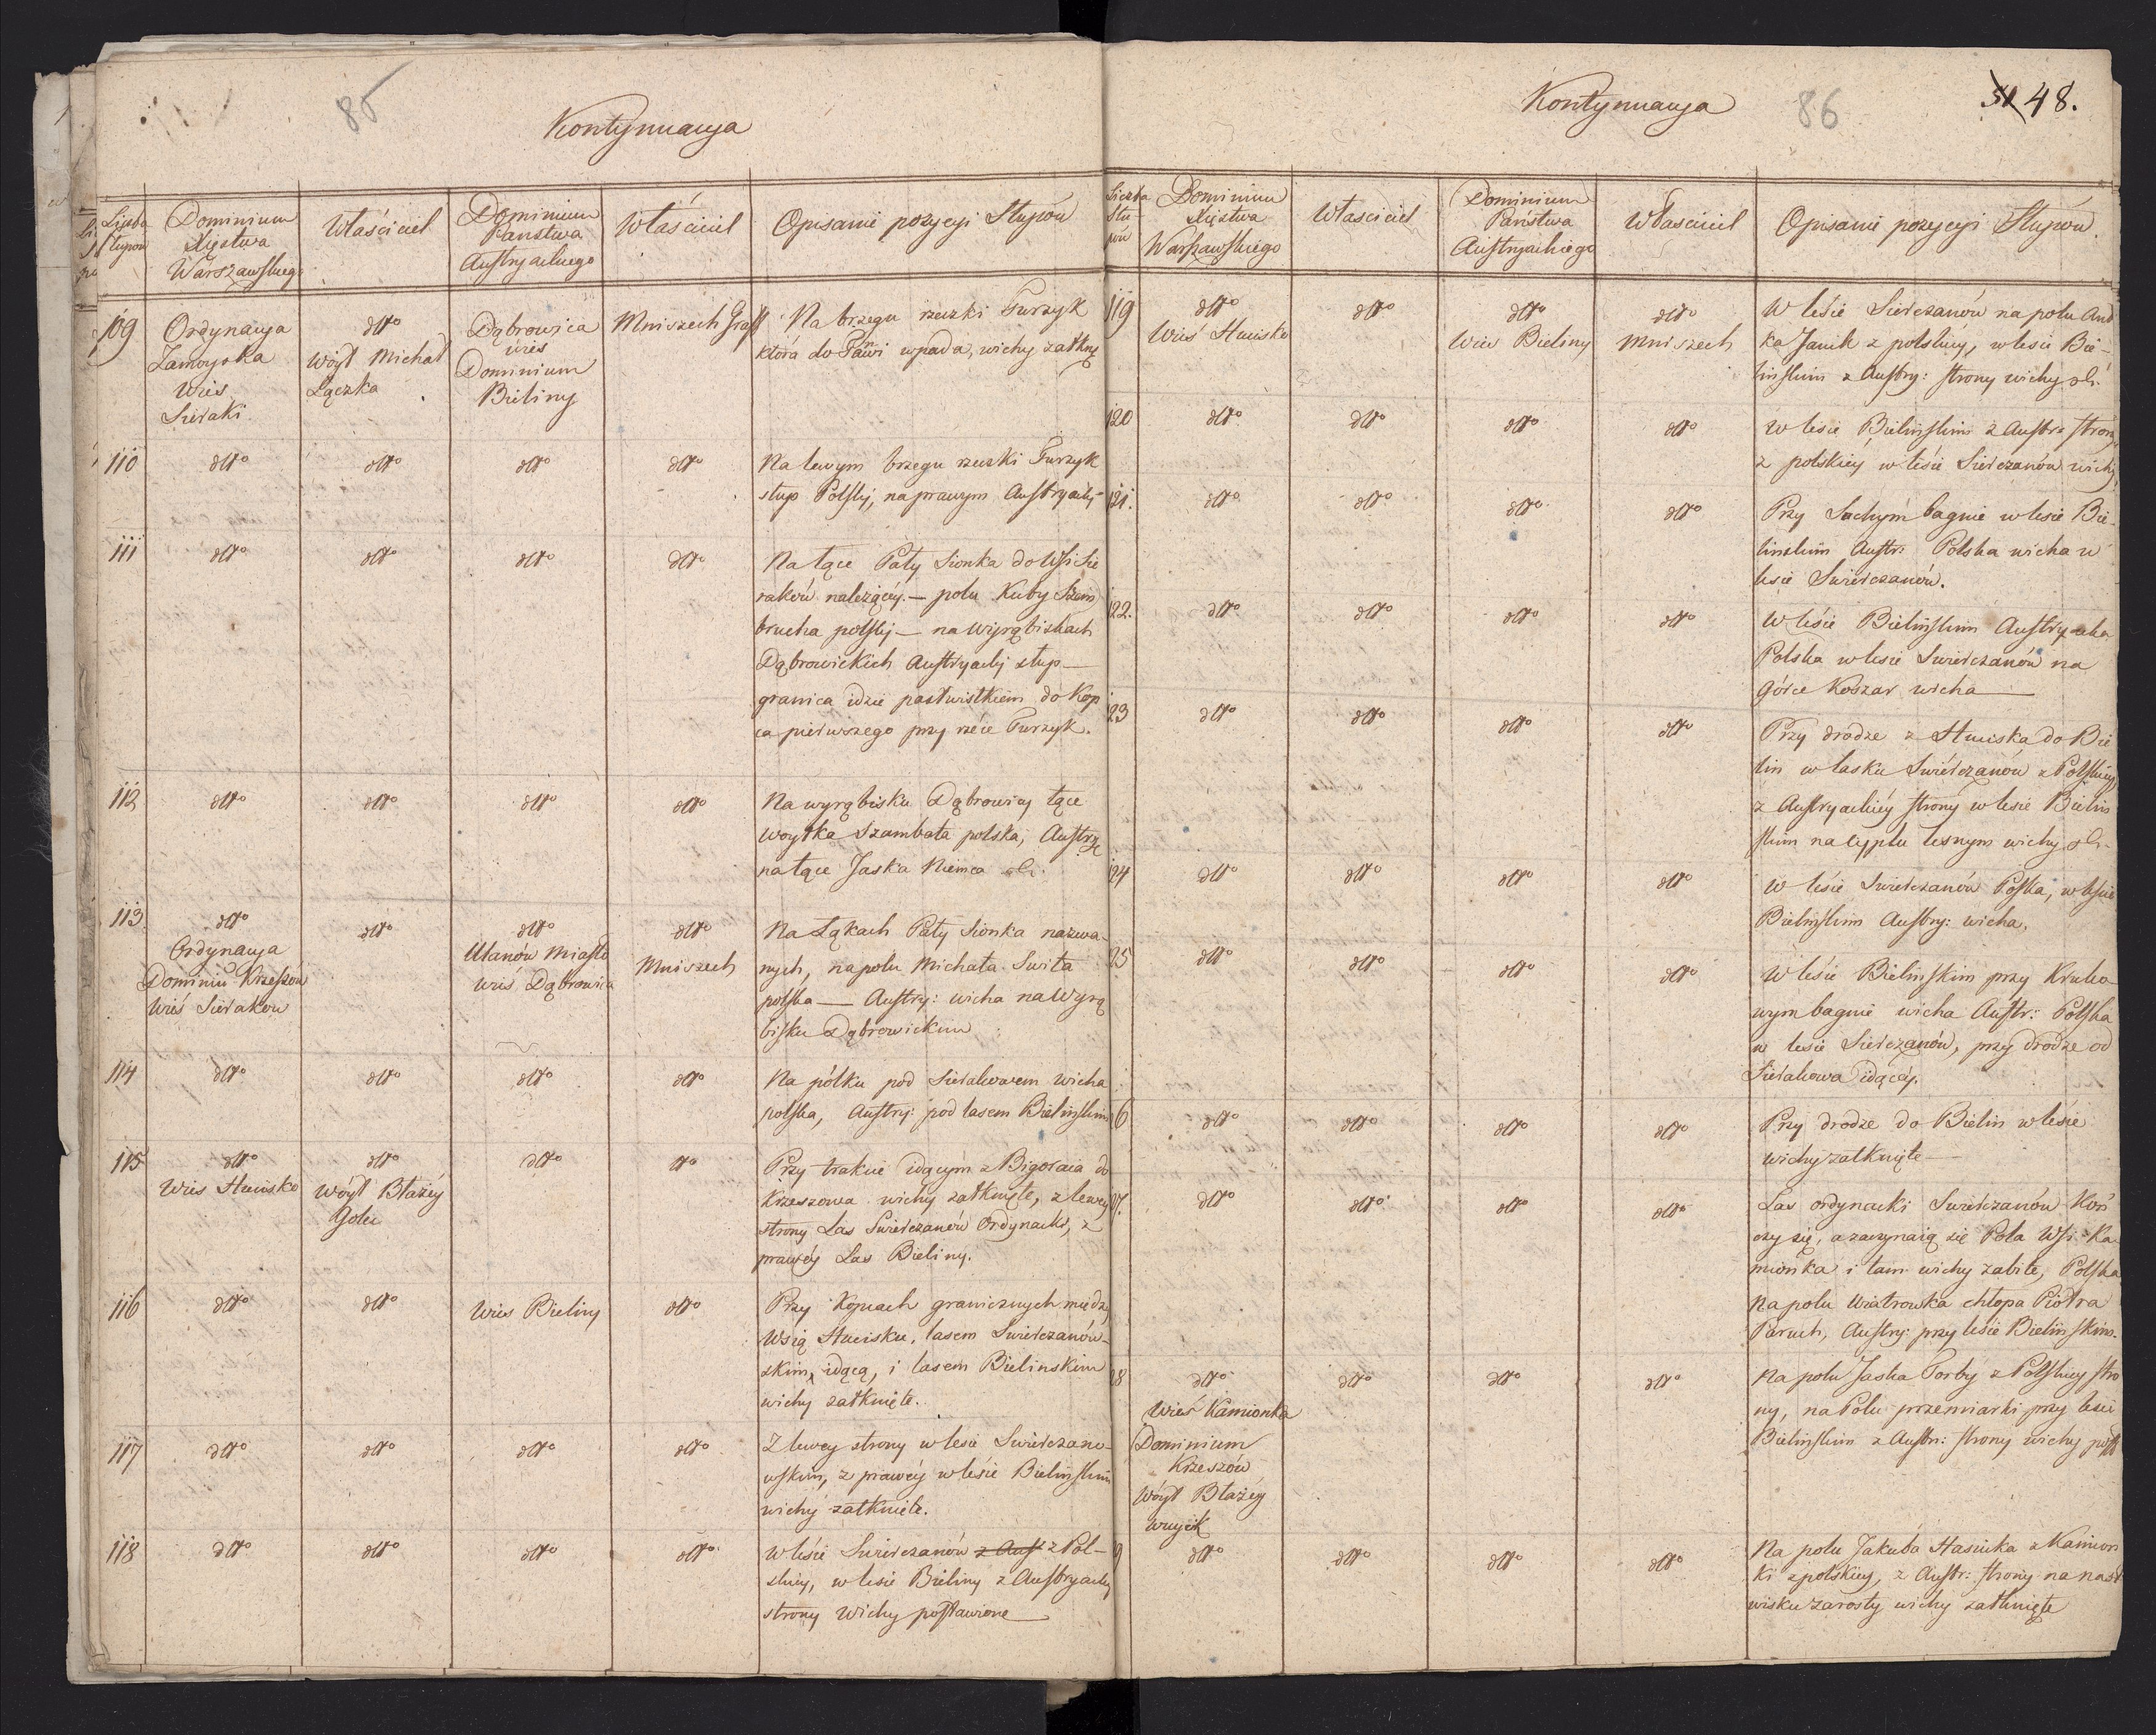 85
Kontynuacya
Liczba Słupow
Dominium Xięstwa Warszawskiego
Właściciel
Dominium Państwa Austryackiego
Właściciel
Opisanie pozycyi Słupow
109
Ordynacya
Zamoyska
Wieś
Sieraki
dtto
Wóyt Michał
Łączka
Dąbrowica
wieś
Dominium
Bieliny
Mniszech Graff
Na brzegu rzeczki Turzyk
która do Tanwi wpada, wichy zatknię
110
dtto
dtto
dtto
dtto
Na lewym brzegu rzeczki Turzyk
słup Polski, na prawym Austryacki
111
dtto
dtto
dtto
dtto
Na łące Pały Sionka do Wsi Sie
raków należącéy. — polu Kuby Szem
brucha polski — na Wyrąbiskach
Dąbrowickich Austryacki słup —
granica idzie pastwiskiem do Kop
ca pierwszego przy rzéce Turzyk.
112
dtto
dtto
dtto
dtto
Na wyrąbisku Dąbrowicy łące
Woytka Szambata polska, Austryc
na łące Jaśka Niemca
113
dtto
Ordynacya
Dominiu Krzeszów
Wieś Sierakow
dtto
dtto
Ulanów Miasto
wieś Dąbrowica
dtto
Mniszech
Na Łąkach Pały Sionka nazwa-
nych, na polu Michała Swita
polska — Austry: wicha na Wyrą
bisku Dąbrowickim
114
dtto
dtto
dtto
dtto
Na pólku pod Sierakowem wicha
polska, Austry: pod lasem Bielinskim
115
dtto
Wies Huciska
dtto
Wóyt Błażéy
Golec
dtto
dtto
Przy trakcie idącym z Bigoraia do
Krzeszowa wichy zatknięte, z lewey
strony Las Swierczanów Ordynacki, z
prawéy Las Bieliny.
116
dtto
dtto
Wies Bieliny
dtto
Przy Kopcach granicznych między
Wsią Hucisku, lasem Swierczanów-
skim, idącą, i lasem Bielinskim
wichy zatknięte.
117
dtto
dtto
dtto
dtto
Z lewey strony w lesie Swierczano-
wskim, z prawéy w lesie Bielinskim
wichy zatkniete.
118
dtto
dtto
dtto
dtto
W leśie Swierczanów z Aust z Pol-
skiéy, w lesie Bieliny z Austryacky
strony Wichy postawione
Kontynuacya
86
51 48.
Liczba Słupów
Dominium Xięstwa Warszawskiego
Właściciel
Dominium Państwa Austryackiego
Właściciel
Opisanie pozycyi Słupów.
119
dtto
Wieś Huciska
dtto
dtto
Wies Bieliny
dtto
Mniszech
W leśie Sierczanów na polu And
ka Janik z polskiey, w lesie Bie-
linskim z Austry: strony wichy
120
dtto
dtto
dtto
dtto
W lesie Bielinskim z Austr: strony,
z polskiey w leśie Sierczanów wichy
121.
dtto
dtto
dtto
dtto
Przy Suchym bagnie w lesie Bie-
linskim Austr: Polska wicha w
lesie Swierczanów.
122.
dtto
dtto
dtto
dtto
W leśie Bielinskim Austryacka
Polska w lesie Swierczanów na
górce Koszar wicha —
23
dtto
dtto
dtto
dtto
Przy drodze z Huciska do Bie
lin w lasku Swierczanow z Polskiey,
z Austryackiéy strony w lesie Bielin
skim na cyplu leśnym wichy
124
dtto
dtto
dtto
dtto
W leśie Swierczanów Polska, w lesie
Bielinskim Austry: wicha.
25
dtto
dtto
dtto
dtto
W leśie Bielinskim przy Kruko-
wym bagnie wicha Austr: Polska
w lesie Sierczanów, przy drodze od
Sierakowa idącéy.
6
dtto
dtto
dtto
dtto
Przy drodze do Bielin w lesie
wichy zatknięte —
27.
dtto
dtto
dtto
dtto
Las ordynacki Swierczanów Koń
czy się, a zaczynaią się Pola Wsi Ka
mionka i tam wichy zabite, Polska
na polu Wiatrowka chłopa Piotra
Paruch, Austry: przy leśie Bielinskim.
28
dtto
Wieś Kamionka
Dominium
Krzeszów
Wóyt Błażéy
Wuycik
dtto
dtto
dtto
Na polu Jaśka Torby z Polskiey stro
ny, na Polu przemiarki przy lesie
Bielinskim z Austr: strony wichy
9
dtto
dtto
dtto
dtto
Na polu Jakuba Hasiuka z Kamion
ki z polskiey, z Austr: strony na
wisku zarosły wichy zatknięte